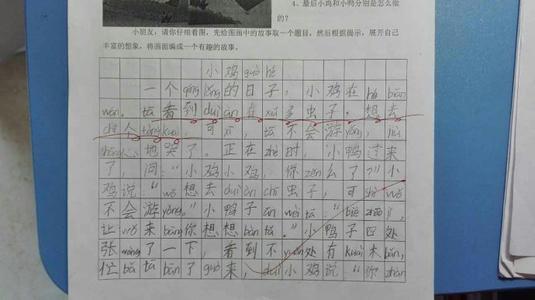 4、最后小鸡和小鸭分别是怎么做
的？
小朋友，请你仔细看图，先给图画中的故事取一个题目，然后根据提示，展开自
丰富的想象，将画面编成一个有趣的故事。
小鸡guò hé
一个qíng lǎng的日子，小鸡在hé biān
wán。它看到duì àn有xǔ多虫子，想去
可 它不会游yǒng，
地哭了。正在 时，小鸭过来
了，问：“小鸡小鸡，你zěn么了？”小
鸡说：“wǒ想去duì àn chī虫子，可shì wǒ
不会游yǒng。”小鸭子ān wèi它：“bié zhāo jí，
让wǒ来bāng你想想bàn fǎ。”小鸭子四处
张wàng了一下，看到不yuǎn处有 木bǎn，
忙bǎ它bān了guò来，duì小鸡说：“你zhàn